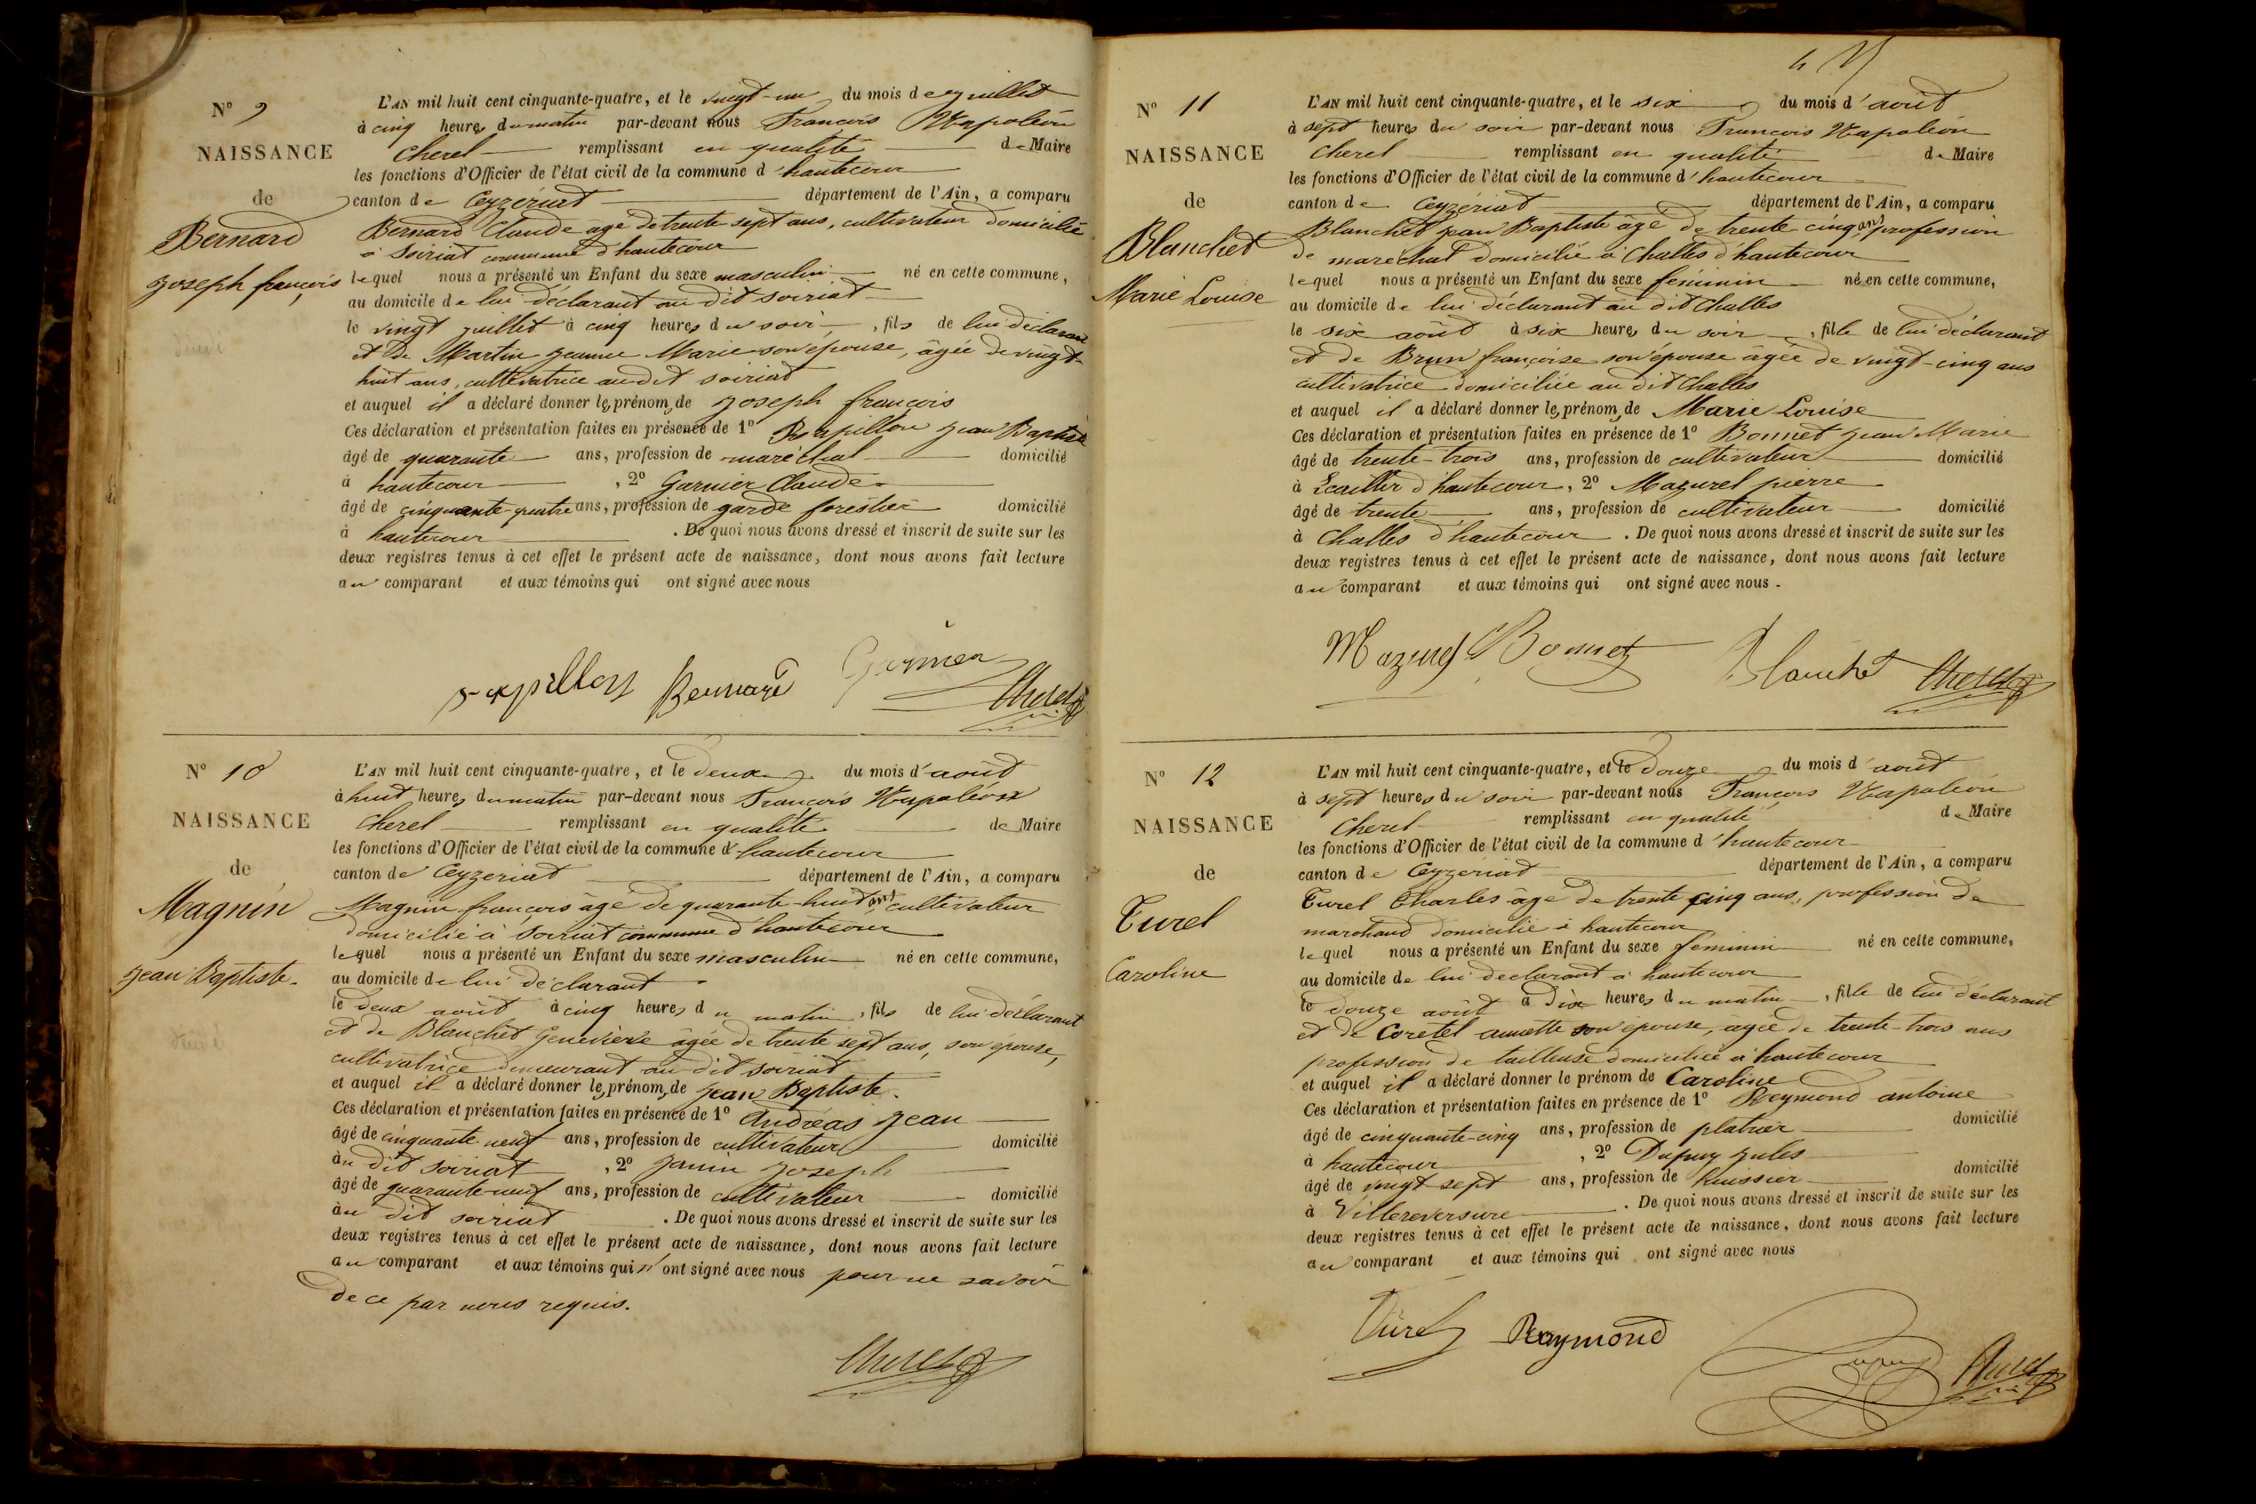 N° 9
NAISSANCE
de
Bernard
joseph françois
L'AN mil huit cent cinquante-quatre, et le vingt-un du mois de juillet
à cinq heures du matin par-devant nous François Napoléon
Cherel remplissant en qualité de Maire
les fonctions d'Officier de l'état civil de la commune d'hautecour
canton de Ceyzériat département de l'Ain, a comparu
Bernard Claude âgé de trente sept ans, cultivateur domicilié
à Soiriat commune d'hautecour
lequel nous a présenté un Enfant du sexe masculin né en cette commune,
au domicile de lui déclarant au dit soiriat
le vingt juillet à cinq heures du soir, fils de lui déclarant
et de Martin jeanne Marie son épouse, âgée de vingt
huit ans, cultivatrice au dit soiriat
et auquel il a déclaré donner les prénoms de joseph françois
Ces déclaration et présentation faites en présence de 1° Papillon jean Baptiste
âgé de quarante ans, profession de maréchal domicilié
à hautecour, 2° Garnier Claude
âgé de cinquante-quatre ans, profession de garde forestier domicilié
à hautecour. De quoi nous avons dressé et inscrit de suite sur les
deux registres tenus à cet effet le présent acte de naissance, dont nous avons fait lecture
au comparant et aux témoins qui ont signé avec nous
papillon Bernard Garnier
Cherel
N° 10
NAISSANCE
de
Magnin
jean Baptiste.
L'AN mil huit cent cinquante-quatre, et le deux du mois d'août
à huit heures du matin par-devant nous François Napoléon
Cherel remplissant en qualité de Maire
les fonctions d'Officier de l'état civil de la commune d'hautecour
canton de Ceyzeriat département de l'Ain, a comparu
Magnin françois âgé de quarante-huit ans cultivateur
domicilié à Soiriat commune d'hautecour
lequel nous a présenté un Enfant du sexe masculin né en cette commune,
au domicile de lui déclarant
le deux août à cinq heures du matin, fils de lui déclarant
et de Blanchet Geneviève âgée de trente sept ans, son épouse,
cultivatrice demeurant au dit soiriat
et auquel il a déclaré donner les prénoms de jean Baptiste.
Ces déclaration et présentation faites en présence de 1° Andréas jean
âgé de cinquante neuf ans, profession de cultivateur domicilié
au dit soiriat, 2° janin joseph
âgé de quarante-neuf ans, profession de cultivateur domicilié
au dit soiriat. De quoi nous avons dressé et inscrit de suite sur les
deux registres tenus à cet effet le présent acte de naissance, dont nous avons fait lecture
au comparant et aux témoins qui n'ont signé avec nous pour ne savoir
de ce par nous requis.
Cherel
N° 11
NAISSANCE
de
Blanchet
Marie Louise
L'AN mil huit cent cinquante-quatre, et le six du mois d'août
à sept heures du soir par-devant nous François Napoléon
Cherel remplissant en qualité de Maire
les fonctions d'Officier de l'état civil de la commune d'hautecour
canton de Ceyzériat département de l'Ain, a comparu
Blanchet jean Baptiste âgé de trente cinq ans profession
de marechal domicilié à Challes d'hautecour
lequel nous a présenté un Enfant du sexe féminin né en cette commune,
au domicile de lui déclarant au dit Challes
le six août à six heures du soir, fille de lui déclarant
et de Brun françoise son épouse âgée de vingt-cinq ans
cultivatrice domiciliée au dit Challes
et auquel il a déclaré donner les prénoms de Marie Louise
Ces déclaration et présentation faites en présence de 1° Bonnet jean Marie
âgé de trente-trois ans, profession de cultivateur domicilié
à Ecaillir d'hautecour, 2° Mazurel pierre
âgé de trente ans, profession de cultivateur domicilié
à Challes d'hautecour. De quoi nous avons dressé et inscrit de suite sur les
deux registres tenus à cet effet le présent acte de naissance, dont nous avons fait lecture
au comparant et aux témoins qui ont signé avec nous.
Mazurel Bonnet Blanchet Cherel
N° 12
NAISSANCE
de
Turel
Caroline
L'AN mil huit cent cinquante-quatre, et le douze du mois d'août
à sept heures du soir par-devant nous François Napoléon
Cherel remplissant en qualité de Maire
les fonctions d'Officier de l'état civil de la commune d'hautecour
canton de Ceyzeriat département de l'Ain, a comparu
Turel Charles âgé de trente cinq ans, profession de
marchand domicilié à hautecour
lequel nous a présenté un Enfant du sexe féminin né en cette commune,
au domicile de lui declarant à hautecour
le douze août à dix heures du matin, fille de lui déclarant
et de Coretel annette son épouse, âgée de trente-trois ans
profession de tailleuse domiciliée à hautecour
et auquel il a déclaré donner le prénom de Caroline
Ces déclaration et présentation faites en présence de 1° Reymond antoine
âgé de cinquante-cinq ans, profession de platrier domicilié
à hautecour, 2° Dupuy jules
âgé de vingt-sept ans, profession de huissier domicilié
à Villereversure. De quoi nous avons dressé et inscrit de suite sur les
deux registres tenus à cet effet le présent acte de naissance, dont nous avons fait lecture
au comparant et aux témoins qui ont signé avec nous
Turel Reymond
Dupuy Cherel